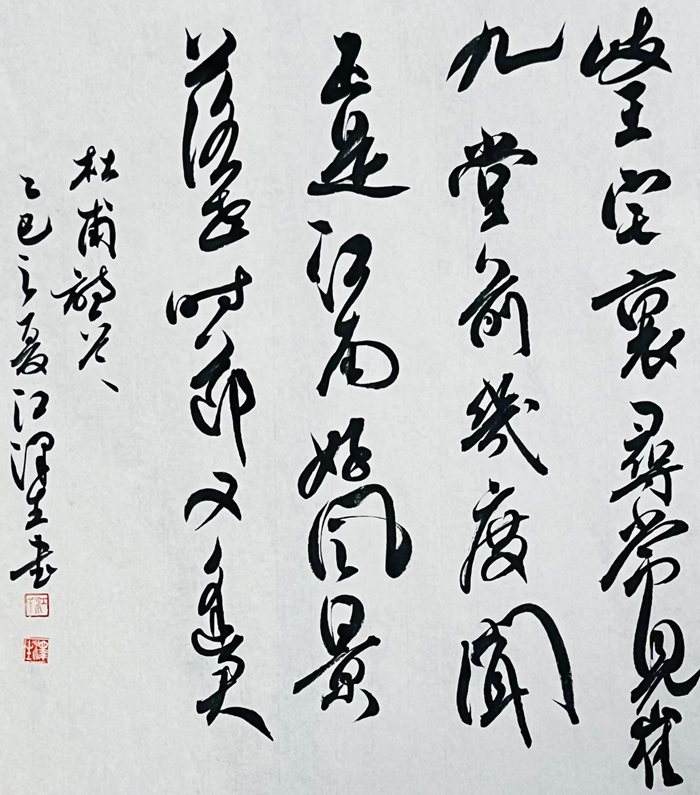 岐王宅裏尋常見崔
九堂前幾度聞
正是江南好風景
落花時節又逢君
杜甫詩
乙巳之夏江澤生書
澤生